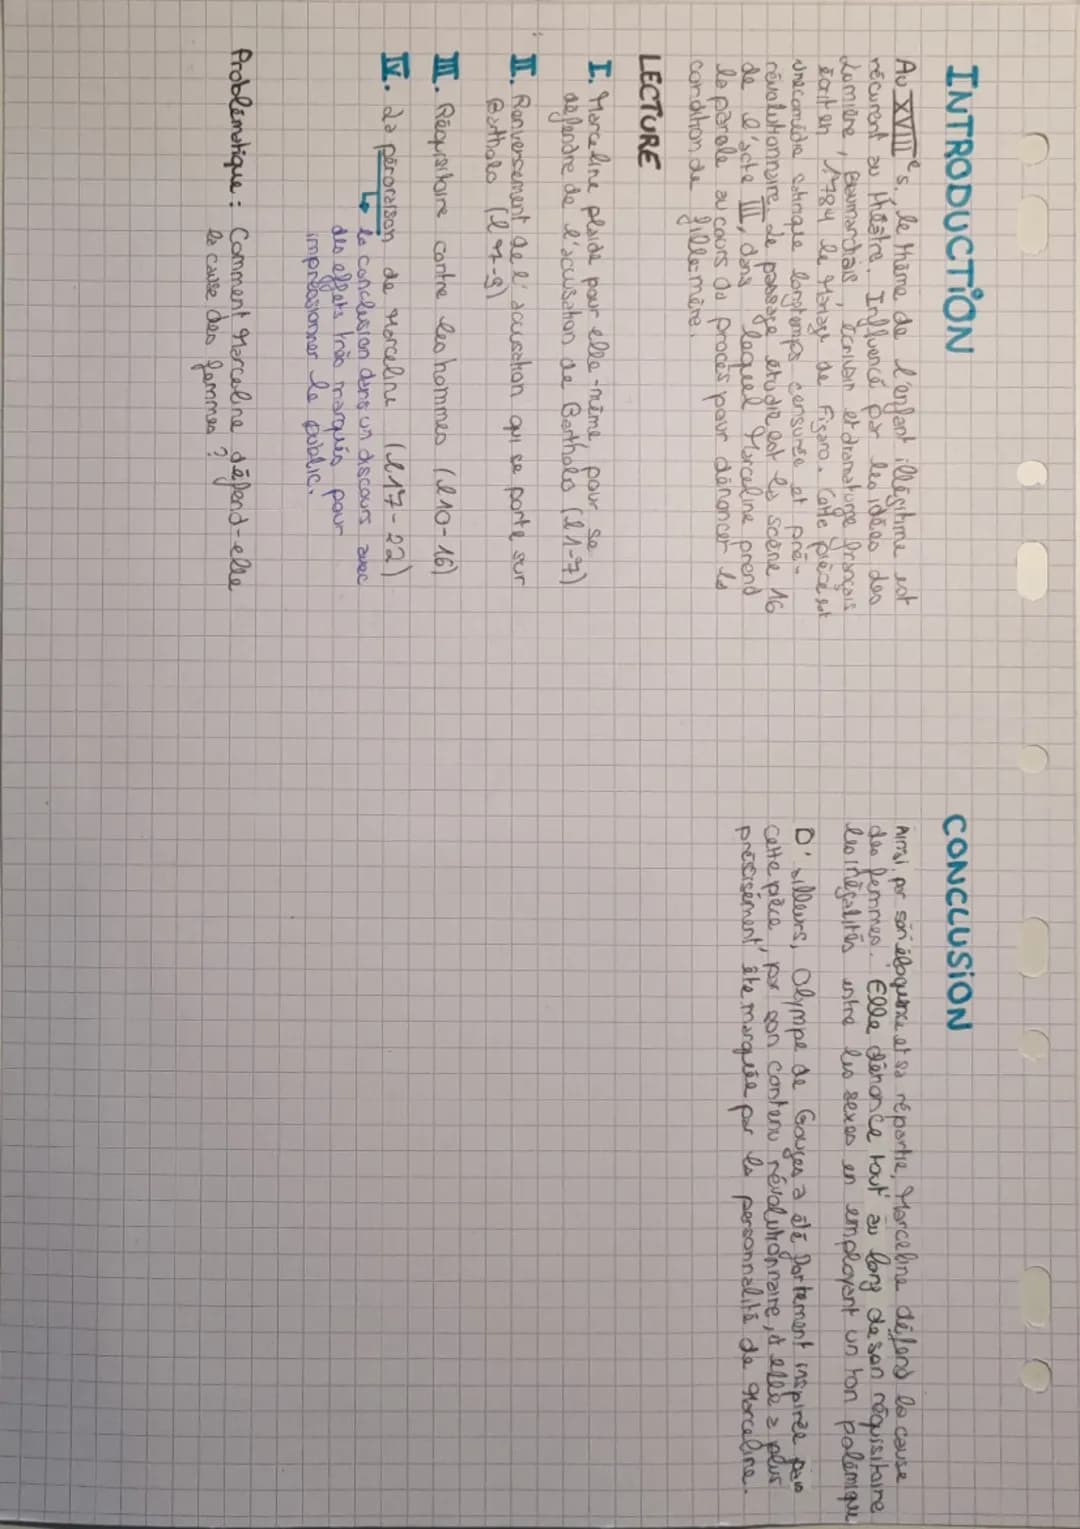 INTRODUCTION
Au XVIIIe s., le thème de l'enfant illégitime est
récurent au théâtre. Influencé par les idées des
Lumière, Beaumarchais, écrivain et dramaturge français
écrit en 1784 le Mariage de Figaro. Cette pièce est
une comédie satirique longtemps censurée et pré-
révolutionnaire. Le passage étudié est la scène 16
de l'acte III, dans lequel Marceline prend
la parole au cours du procès pour dénoncer la
condition de fille-mère.
LECTURE
I. Marceline plaide pour elle-même, pour se
défendre de l'accusation de Bartholo (l1-7)
II. Renversement de l'accusation qui se porte sur
Bartholo (l7-9)
III. Réquisitoire contre les hommes (l10-16)
IV. La péroraison de Marceline (l17-22)
↳ la conclusion dans un discours avec
des effets très marqués pour
impressionner le public.
Problématique : Comment Marceline défend-elle
la cause des femmes ?
CONCLUSION
Ainsi, par son éloquence et sa répartie, Marceline défend la cause
des femmes. Elle dénonce tout au long de son réquisitoire
les inégalités entre les sexes en employant un ton polémique
D'ailleurs, Olympe de Gouges a été fortement inspirée par
cette pièce, par son contenu révolutionnaire, et elle a plus
précisément été marquée par la personnalité de Marceline.